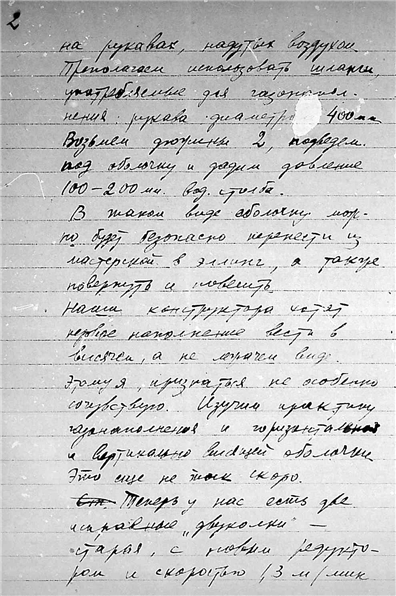 2
на рукавах, надутых воздухом.
Преполагаем использовать шланги,
употребляемые для газонапол-
нения: рукава диаметро 400 мм
Возьмем дюжины 2, подведем
под оболочку и дадим давление
100–200 мм. вод. столба.
В таком виде оболочку мож-
но будет безопасно перенести из
мастерской в эллинг, а также
повернуть и повесить.
Наши конструктора хотят
первое наполнение вести в
висячем, а не лежачем виде.
Этому я, признаться не особенно
сочувствую. Изучим практику
газонаполнения и горизонтально
и вертикально висящей оболочки
Это еще не так скоро.
Теперь у нас есть две
исправные "двуколки" –
старая, с новым редукто-
ром и скоростью 13 м/мин